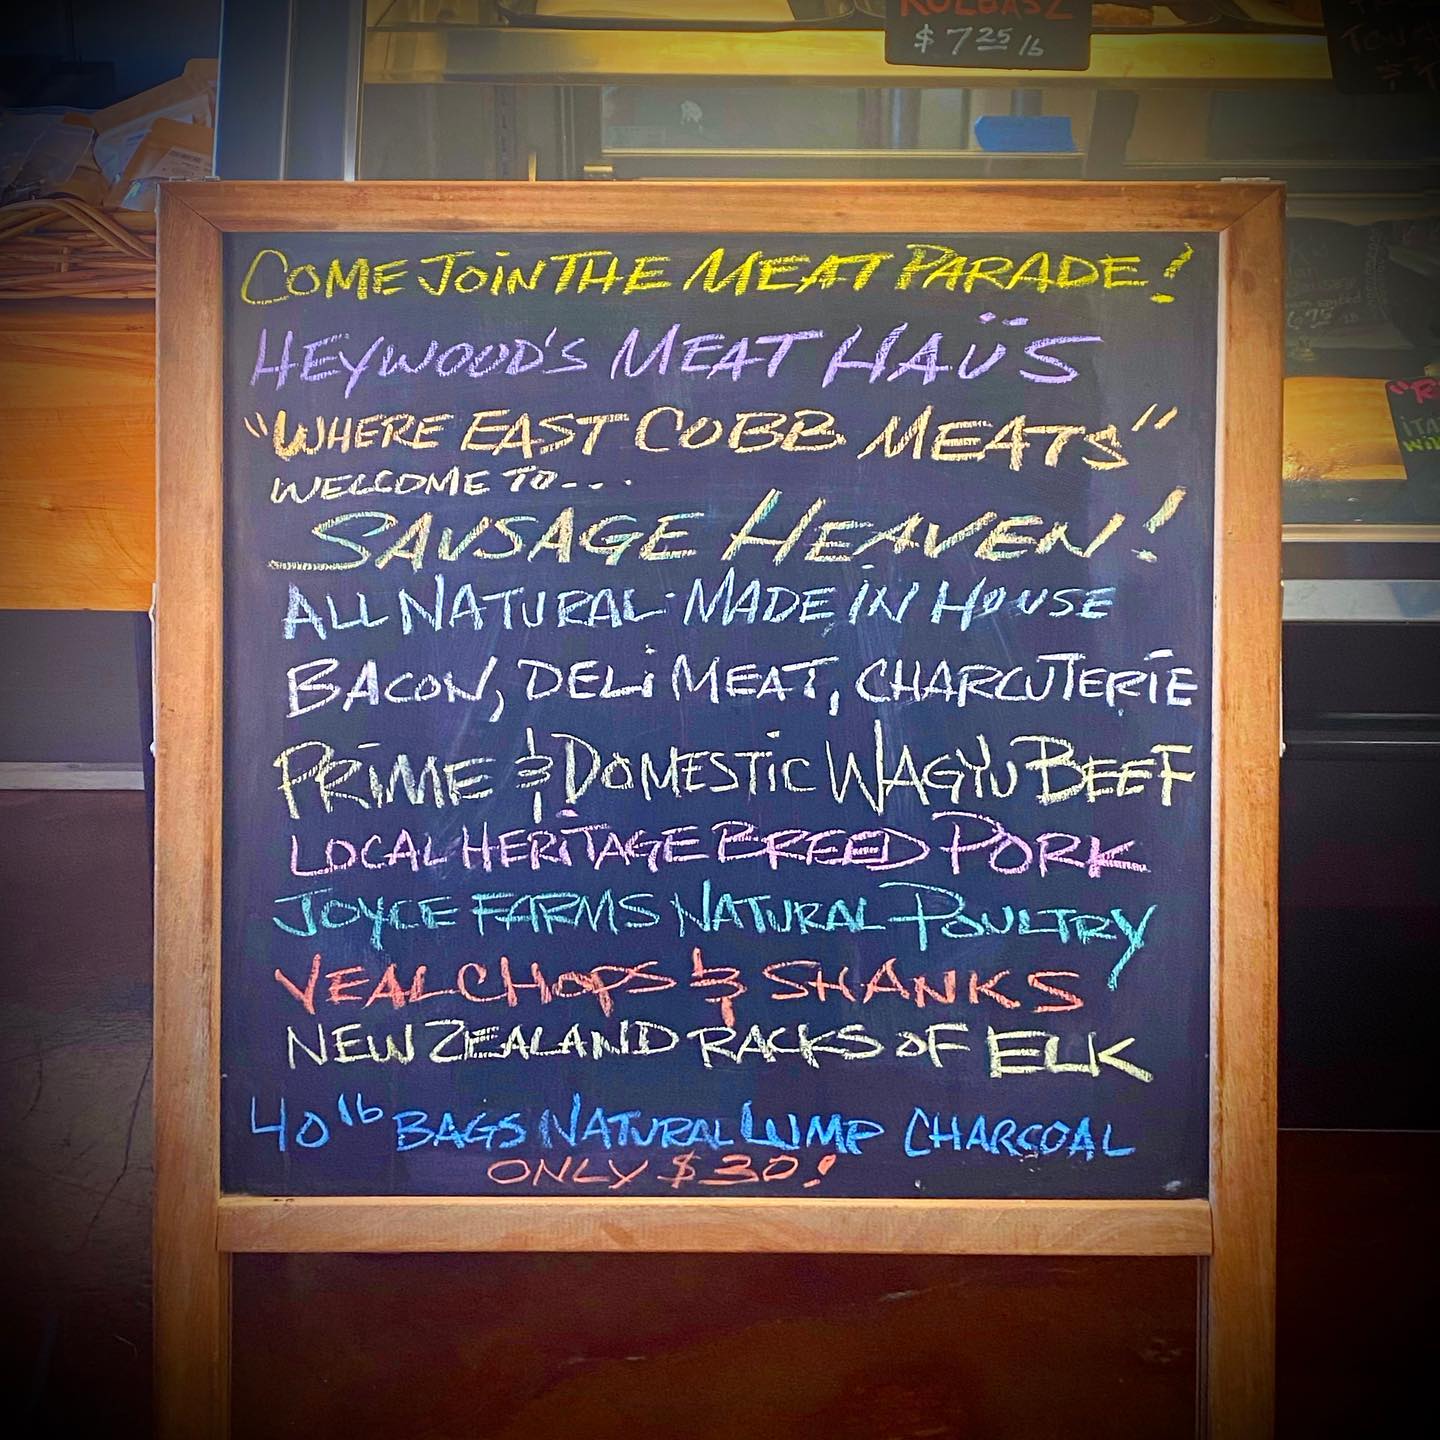 KOLBASZ
$7.25 lb
COME JOIN THE MEAT PARADE!
HEYWOOD'S MEAT HAÜS
"WHERE EAST COBB MEATS"
WELCOME TO...
SAUSAGE HEAVEN!
ALL NATURAL · MADE IN HOUSE
BACON, DELI MEAT, CHARCUTERIE
PRIME & DOMESTIC WAGYU BEEF
LOCAL HERITAGE BREED PORK
JOYCE FARMS NATURAL POULTRY
VEAL CHOPS & SHANKS
NEW ZEALAND RACKS OF ELK
40 lb BAGS NATURAL LUMP CHARCOAL
ONLY $30!